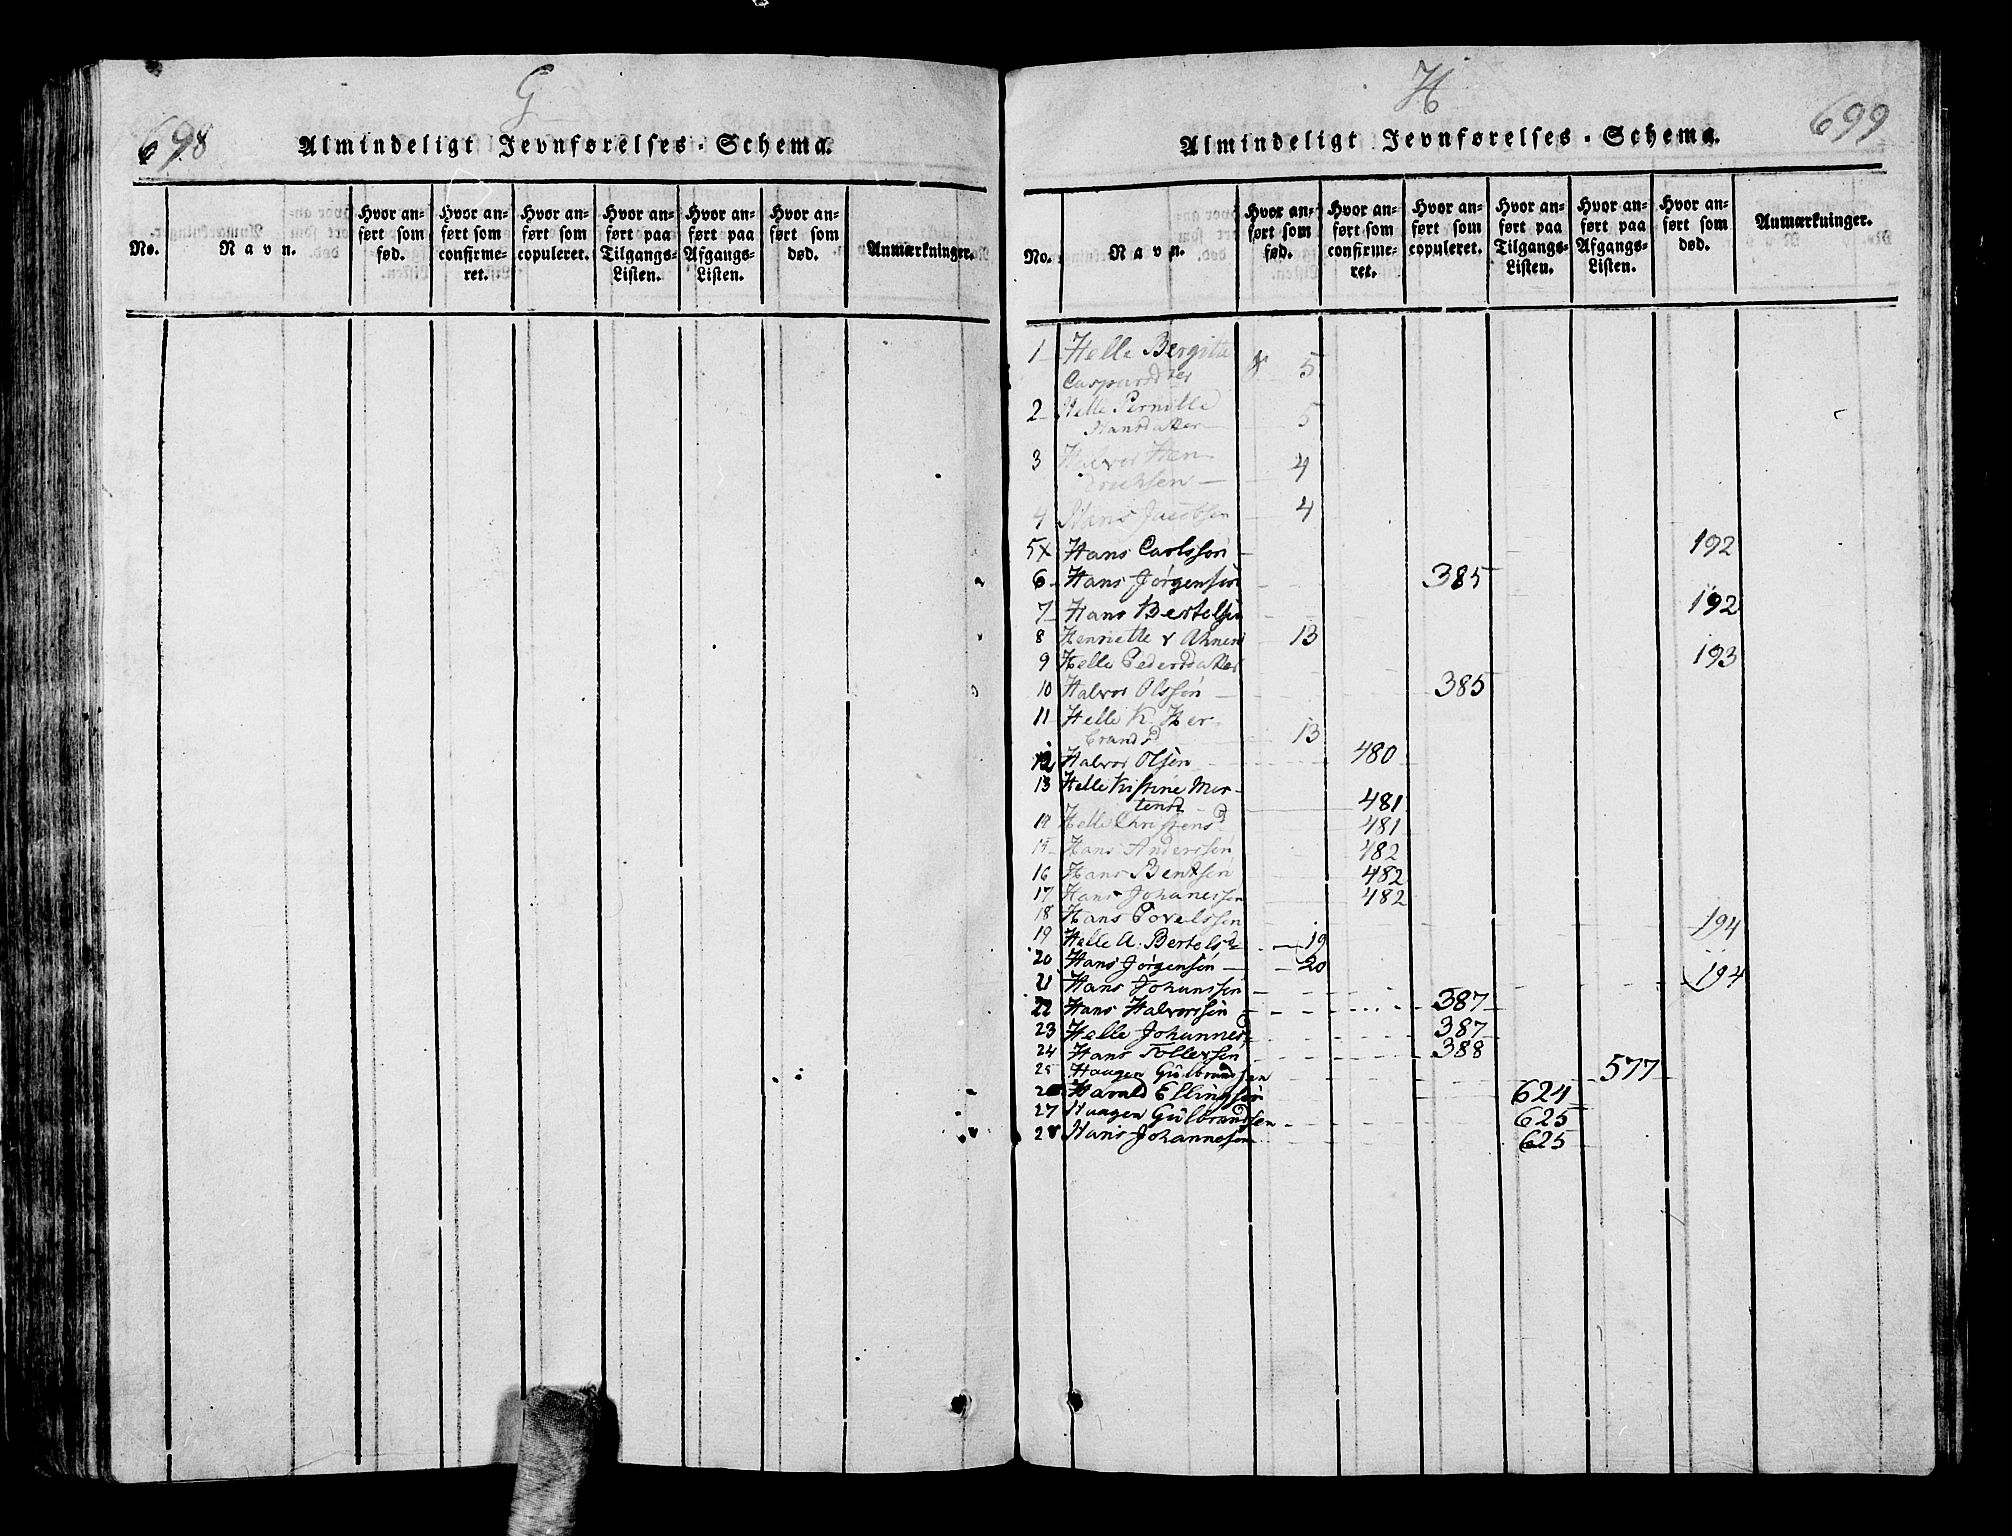 G
698
Almindeligt Jevnførelses-Schema.
No.
Navn.
Hvor an-
ført som
fød.
Hvor an-
ført som
confirme-
ret.
Hvor an-
ført som
copuleret.
Hvor an-
ført paa
Tilgangs-
Listen.
Hvor an-
ført paa
Afgangs-
Listen.
Hvor an-
ført som
død.
Anmærkninger.
H
699
Almindeligt Jevnførelses-Schema.
No.
Navn.
Hvor an-
ført som
fød.
Hvor an-
ført som
confirme-
ret.
Hvor an-
ført som
copuleret.
Hvor an-
ført paa
Tilgangs-
Listen.
Hvor an-
ført paa
Afgangs-
Listen.
Hvor an-
ført som
død.
Anmærkninger.
1 Helle Bergitte
Caspersdter 5
2 Helle Pernille
Hansdatter 5
3 Halvor Hen-
drichsen 4
4 Hans Jacobsen 4
5 X Hans Carlssøn 192
6 Hans Jørgensøn 385
7 Hans Bertelsøn 192
8 Henriette v Ahnen 13
9 Helle Pedersdatter 193
10 Halvor Olssøn 385
11 Helle K. Her-
brandsd 13
12 Halvor Olsøn 480
13 Helle Kistine Mor-
tensd 481
14 Helle Christensd 481
15 Hans Anderssøn 482
16 Hans Bentsøn 482
17 Hans Johanessen 482
18 Hans Povelssøn 194
19 Helle A. Bertelsd 19
20 Hans Jørgensøn 20
21 Hans Johanssøn 194
22 Hans Halvorssøn 387
23 Helle Johannesd 387
24 Hans Tollefsøn 388
25 Haagen Gülbrandsen 577
26 Harald Ellingsøn 624
27 Haagen Gülbrandsen 625
28 Hans Johannesen 625